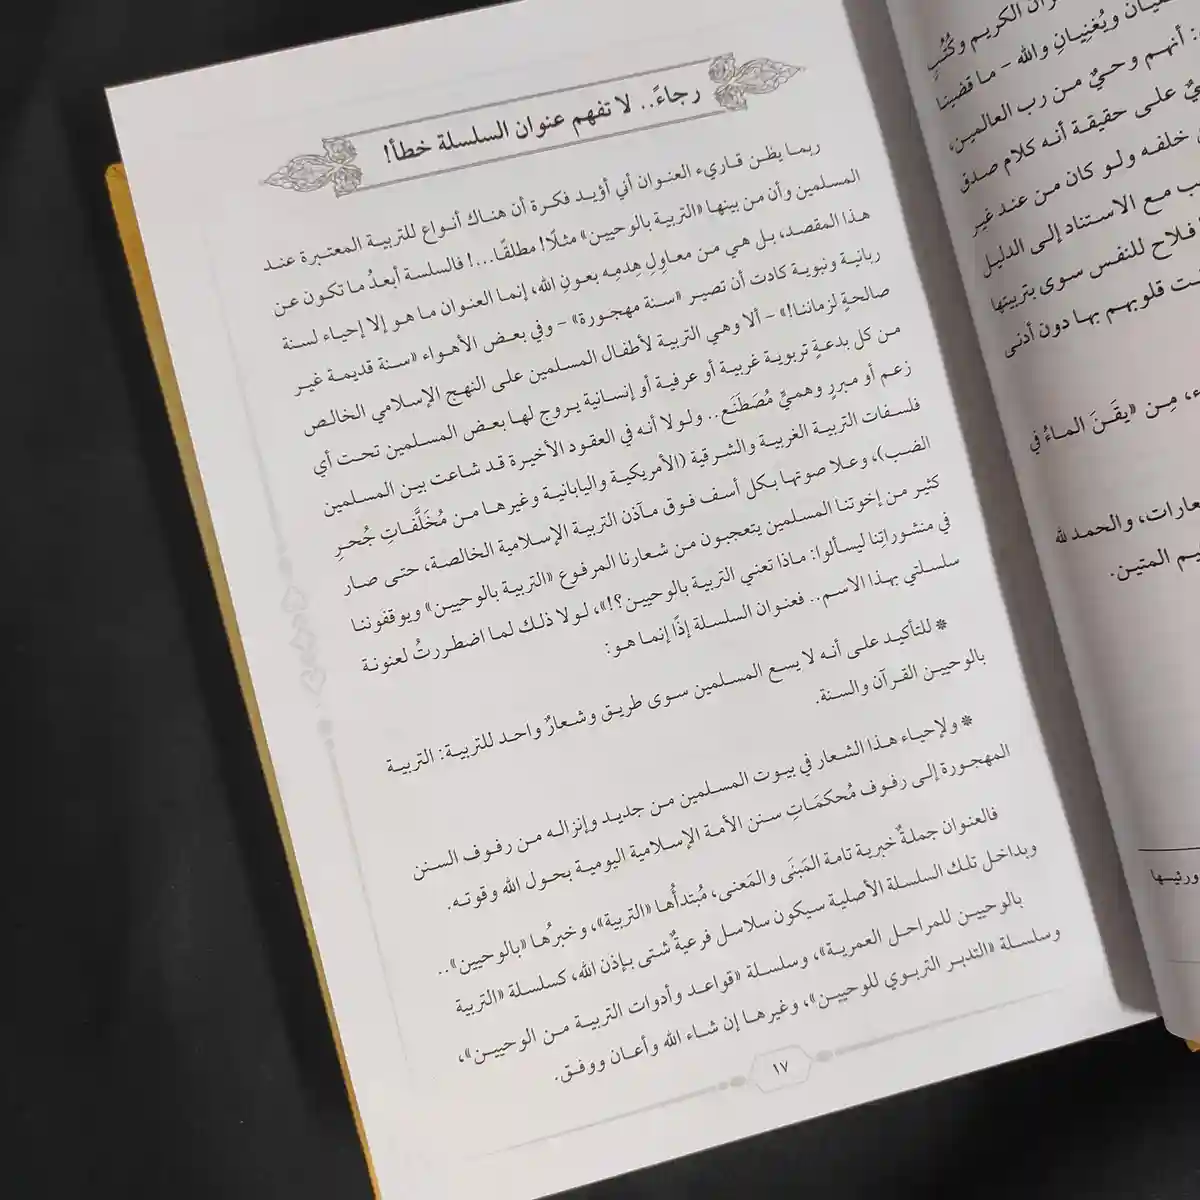 رجاءً.. لا تفهم عنوان السلسلة خطأ!
ربما يظن قاريء العنوان أني أؤيد فكرة أن هناك أنواع للتربية المعتبرة عند
المسلمين وأن من بينها «التربية بالوحيين» مثلًا! مطلقًا...! فالسلسة أبعدُ ما تكون عن
هذا المقصد، بل هي من معاوِلِ هِدمِه بعونِ الله، إنما العنوان ما هو إلا إحياء لسنة
ربانية ونبوية كادت أن تصير «سنة مهجورة» - وفي بعض الأهواء «سنة قديمة غير
صالحةٍ لزماننا!» - ألا وهي التربية لأطفال المسلمين على النهج الإسلامي الخالص
من كل بدعةٍ تربوية غربية أو عرفية أو إنسانية يروج لها بعض المسلمين تحت أي
زعم أو مبررٍ وهميٍّ مُصَطَنَع.. ولولا أنه في العقود الأخيرة قد شاعت بين المسلمين
فلسفات التربية الغربية والشرقية (الأمريكية واليابانية وغيرها من مُخَلَّفَاتِ جُحرِ
الضب)، وعلا صوتها بكل أسف فوق مآذن التربية الإسلامية الخالصة، حتى صار
كثير من إخوتنا المسلمين يتعجبون من شعارنا المرفوع «التربية بالوحيين» ويوقفوننا
في منشوراتِنا ليسألوا: ماذا تعني التربية بالوحيين؟!»، لولا ذلك لما اضطررتُ لعنونة
سلسلتي بهذا الاسم.. فعنوان السلسلة إذًا إنما هو:
* للتأكيد على أنه لا يسع المسلمين سوى طريق وشعارٌ واحد للتربية: التربية
بالوحيين القرآن والسنة.
* ولإحياء هذا الشعار في بيوت المسلمين من جديد وإنزاله من رفوف السنن
المهجورة إلى رفوف مُحكمَاتِ سنن الأمة الإسلامية اليومية بحول الله وقوته.
فالعنوان جملةٌ خبرية تامة المَبنَى والمَعنى، مُبتدأُها «التربية»، وخبرُها «بالوحيين»..
وبداخل تلك السلسلة الأصلية سيكون سلاسل فرعيةٌ شتى بإذن الله، كسلسلة «التربية
بالوحيين للمراحل العمرية»، وسلسلة «قواعد وأدوات التربية من الوحيين»،
وسلسلة «التدبر التربوي للوحيين»، وغيرها إن شاء الله وأعان ووفق.
١٧
الكريم وكُتُب
ويُغنِيانِ والله - ما قضينا
أنهم وحيٌ من رب العالمين،
على حقيقة أنه كلام صدق
خلفه ولو كان من عند غير
مع الاستناد إلى الدليل
فلاح للنفس سوى بتربيتها
قلوبهم بها دون أدنى
مِن «يقَنَ الماءُ في
والحمد لله
المتين.